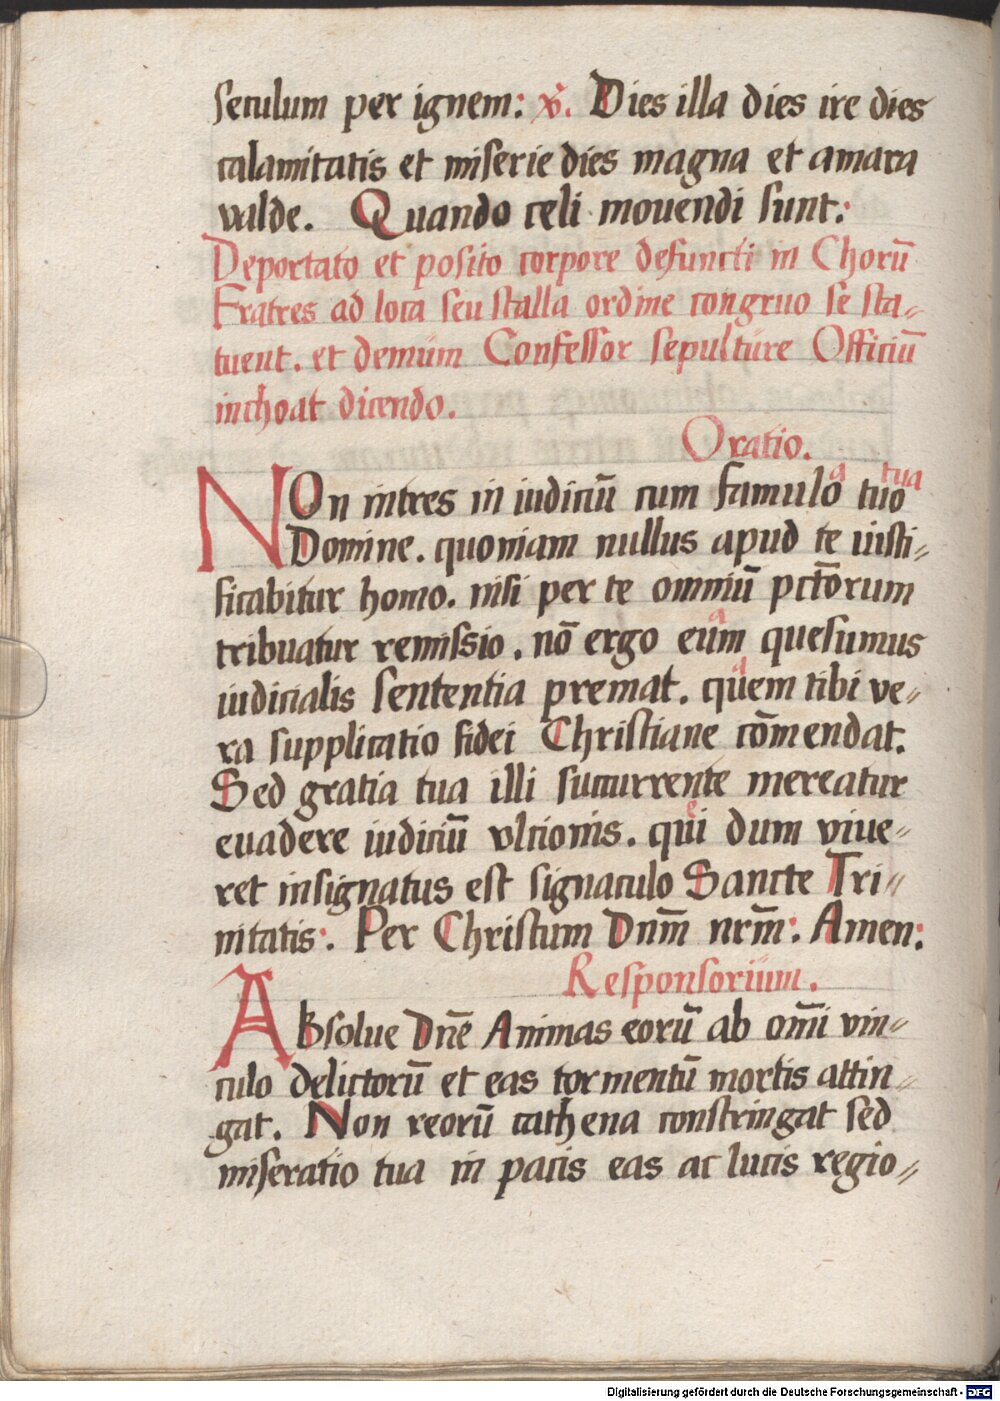 seculum per ignem: v. Dies illa dies ire dies
calamitatis et miserie dies magna et amara
valde. Quando celi movendi sunt:
Deportato et posito corpore defuncti in Chorū
Fratres ad loca seu stalla ordine congruo se sta⸗
tuent. et demum Confessor sepulture Officiū
inchoat dicendo.
Oratio.
a tua
NOn intres in iudiciū cum famulo tuo
Domine. quoniam nullus apud te iusti⸗
ficabitur homo. nisi per te omniū pct̄orum
a
tribuatur remissio. nō ergo eum quesumus
a
iudicialis sententia premat. quem tibi ve⸗
ra supplicatio fidei Christiane cōmendat.
Sed gratia tua illi succurrente mereatur
e
evadere iudiciū vltionis. qui dum vive⸗
ret insignatus est signaculo Sancte Tri⸗
nitatis: Per Christum Dnm̄ nrm̄: Amen:
Responsorium.
ABsolue Dnē Animas eorū ab om̄i vin⸗
culo delictorū et eas tormentū mortis attin⸗
gat. Non reorū cathena constringat sed
miseratio tua in pacis eas ac lucis regio⸗
Digitalisierung gefördert durch die Deutsche Forschungsgemeinschaft - DFG